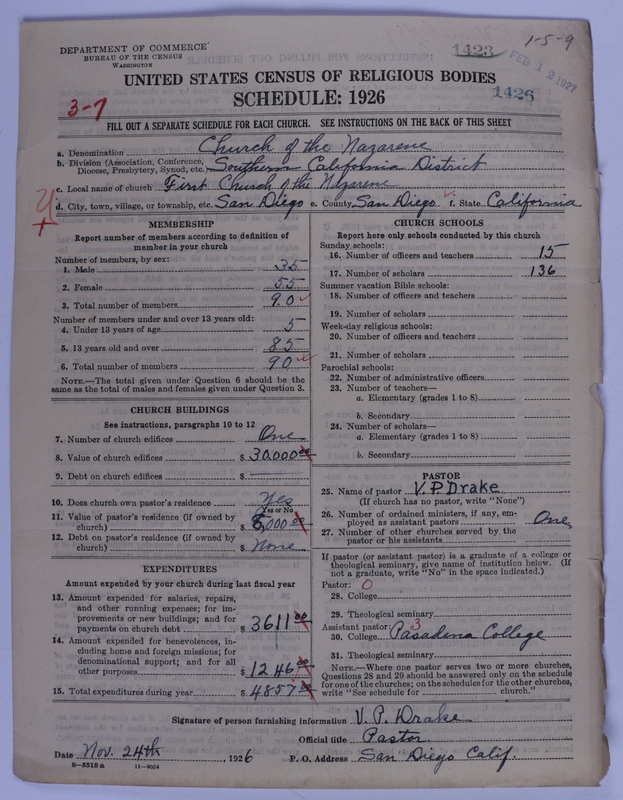 DEPARTMENT OF COMMERCE
BUREAU OF THE CENSUS
WASHINGTON
1423
1-5-9
FEB 12 1927
1426
UNITED STATES CENSUS OF RELIGIOUS BODIES
SCHEDULE: 1926
3-7
FILL OUT A SEPARATE SCHEDULE FOR EACH CHURCH. SEE INSTRUCTIONS ON THE BACK OF THIS SHEET
a. Denomination Church of the Nazarene
b. Division (Association, Conference, Diocese, Presbytery, Synod, etc.) Southern California District
c. Local name of church First Church of the Nazarene
d. City, town, village, or township, etc. San Diego e. County San Diego f. State California
MEMBERSHIP
Report number of members according to definition of
member in your church
Number of members, by sex:
1. Male 35
2. Female 55
3. Total number of members 90
Number of members under and over 13 years old:
4. Under 13 years of age 5
5. 13 years old and over 85
6. Total number of members 90
NOTE.—The total given under Question 6 should be the
same as the total of males and females given under Question 3.
CHURCH BUILDINGS
See instructions, paragraphs 10 to 12
7. Number of church edifices One
8. Value of church edifices $ 30,000 00
9. Debt on church edifices $
10. Does church own pastor's residence Yes
Yes or No
11. Value of pastor's residence (if owned by
church) $ 6,000 00
12. Debt on pastor's residence (if owned by
church) $ None
EXPENDITURES
Amount expended by your church during last fiscal year
13. Amount expended for salaries, repairs,
and other running expenses; for im-
provements or new buildings; and for
payments on church debt $ 3611 00
14. Amount expended for benevolences, in-
cluding home and foreign missions; for
denominational support; and for all
other purposes $ 1246 00
15. Total expenditures during year $ 4857 00
CHURCH SCHOOLS
Report here only schools conducted by this church
Sunday schools:
16. Number of officers and teachers 15
17. Number of scholars 136
Summer vacation Bible schools:
18. Number of officers and teachers
19. Number of scholars
Week-day religious schools:
20. Number of officers and teachers
21. Number of scholars
Parochial schools:
22. Number of administrative officers
23. Number of teachers—
a. Elementary (grades 1 to 8)
b. Secondary
24. Number of scholars—
a. Elementary (grades 1 to 8)
b. Secondary
PASTOR
25. Name of pastor V. P. Drake
(If church has no pastor, write "None")
26. Number of ordained ministers, if any, em-
ployed as assistant pastors One
27. Number of other churches served by the
pastor or his assistants
If pastor (or assistant pastor) is a graduate of a college or
theological seminary, give name of institution below. (If
not a graduate, write "No" in the space indicated.)
Pastor: 0
28. College
29. Theological seminary
Assistant pastor: 3
30. College Pasadena College
31. Theological seminary
NOTE.—Where one pastor serves two or more churches,
Questions 28 and 29 should be answered only on the schedule
for one of the churches; on the schedules for the other churches,
write "See schedule for church."
Signature of person furnishing information V. P. Drake
Official title Pastor
Date Nov. 24th, 1926 P. O. Address San Diego Calif.
8-5518 a 11-9034